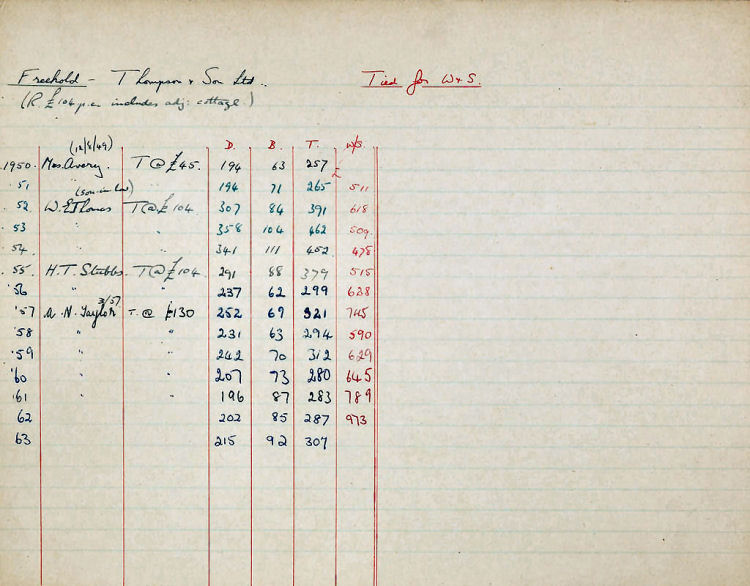 Freehold - Thompson & Son Ltd. Tied for W & S.
(R. £104 p.a. includes adj: cottage.)
(12/8/49) D. B. T. W/S.
1950. Mrs. Avery. T @ £45. 194 63 257
51 " " 194 71 265 £511
(son-in-law)
52 W. E. Thomas T @ £104 307 84 391 618
53 " " 358 104 462 509
54 " " 341 111 452 478
55. H. T. Stubbs. T @ £104 291 88 379 515
'56 " " 237 62 299 628
3/57
'57 A. N. Taylor T. @ £130 252 69 321 745
'58 " " 231 63 294 590
'59 " " 242 70 312 629
'60 " " 207 73 280 645
'61 " " 196 87 283 789
62 202 85 287 973
63 215 92 307